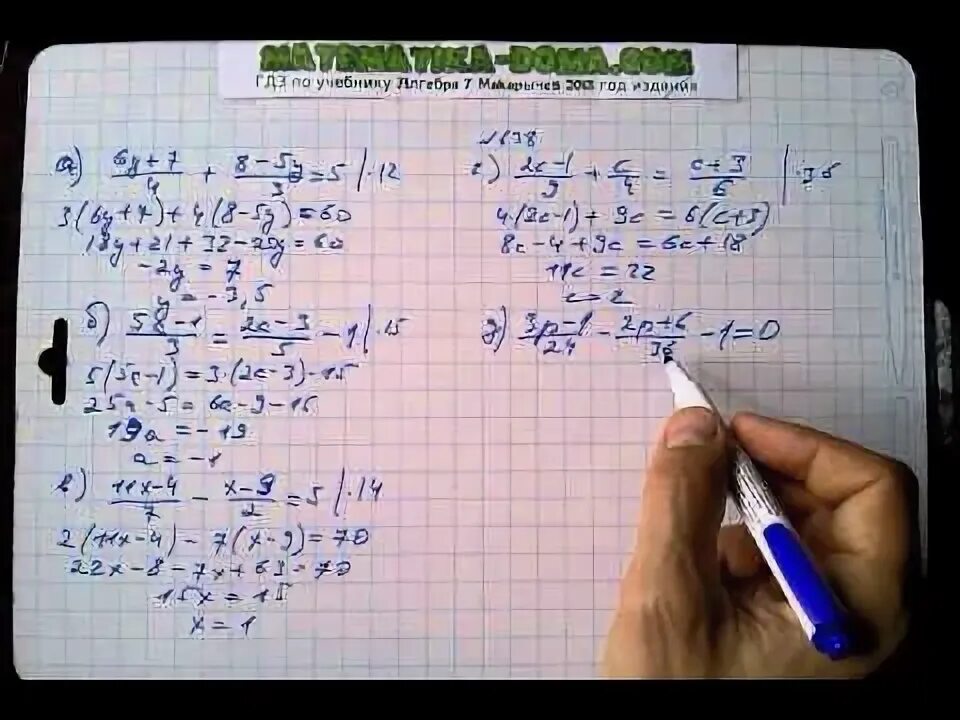 MATEMATIKA-DOMA.COM
ГДЗ по учебнику Алгебра 7 Макарычев 2013 год издания
а) (6y+7)/4 + (8-5y)/3 = 5 |·12
3(6y+7)+4(8-5y)=60
18y+21+32-20y=60
-2y = 7
y = -3,5
б) (5a-1)/3 = (2a-3)/5 - 1 |·15
5(5a-1)=3·(2a-3)-15
25a-5=6a-9-15
19a = -19
a = -1
в) (11x-4)/7 - (x-9)/2 = 5 |·14
2(11x-4)-7(x-9)=70
22x-8-7x+63=70
15x = 15
x = 1
№138
г) (2c-1)/9 + c/4 = (c+3)/6 |·36
4·(2c-1)+9c=6(c+3)
8c-4+9c=6c+18
11c = 22
c = 2
д) (3p-1)/24 - (2p+6)/36 - 1=0